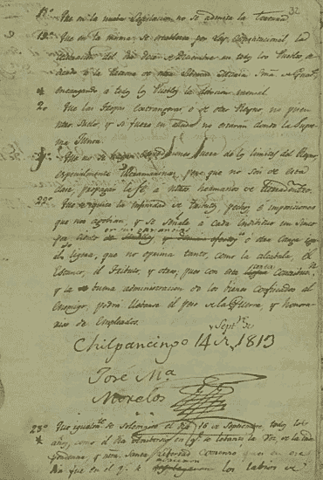 32
18º Que en la nueva Legislacion no se admita la Tortura
19º Que en la misma se establesca por ley Constitucional la
celebracion del dia doce de Diciembre en todos los Pueblos,
encargando a todos los Pueblos la devocion mensual
20 Que las tropas estrangeras o de otro Reyno no pisen
nuestro Suelo, y si fuere en ayuda no estarán donde la Supre
ma Junta
21º Que no se fuera de los limites del Reyno,
especialmente Ultramarinas, pero que no son de esta
clase, propagar la fe a nuestros hermanos de tierra dentro
22º Que se quite la infinidad de tributos, pechos e imposiciones
que nos agobian, y se señale a cada individuo un cinco
por ciento o otra carga
ligera, que no oprima tanto, como la alcabala, el
Estanco, el Tributo, y otros, pues con esta contribucion,
y la buena administracion de los bienes confiscados al
Enemigo, podrá llevarse el peso de la Guerra, y honora
rios de Empleados.
Chilpancingo 14 de Septre. de 1813
José Mª
Morelos
23º Que igualmente se solemnize el dia 16 de Septiembre todos los
años, como el dia Aniversario en que se levantó la voz de la Inde
pendencia, y nuestra Santa Libertad comenzó, pues en ese
dia fue en el que se los labios de